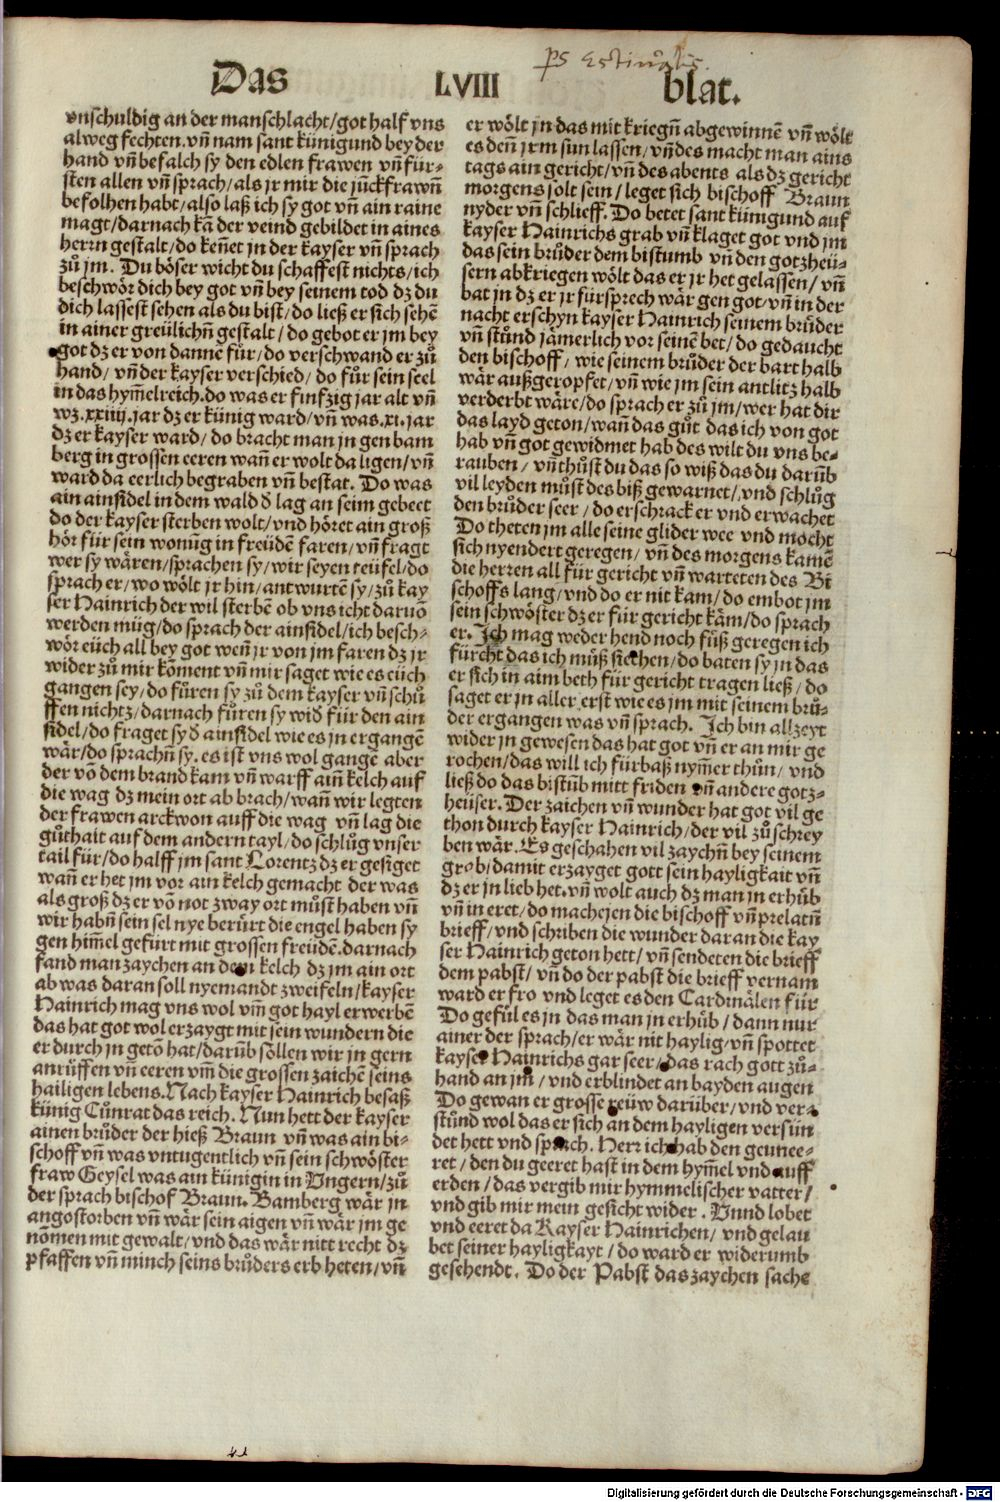 ps Estiualis.
Das LVIII blat.
vnschuldig an der manschlacht/got half vns
alweg fechten.vnͥ nam sant künigund bey der
hand vnͥ befalch sy den edlen frawen vnͥ für-
sten allen vnͥ sprach/als jr mir die jückfrawn̄
befolhen habt/also laß ich sy got vnͥ ain raine
magt/darnach kā der veind gebildet in aines
herrn gestalt/do ken̄et in der kayser vn̄ sprach
zů jm. Du böser wicht du schaffest nichts/ich
beschwör dich bey got vn̄ bey seinem tod dz du
dich lassest sehen als du bist/do ließ er sich sehē
in ainer greülichn̄ gestalt/do gebot er jm bey
got dz er von dannē fůr/do verschwand er zů
hand/vn̄ der kayser verschied/do fůr sein seel
in das hym̄elreich.do was er finfzig jar alt vn̄
wz.xxiiij.jar dz er künig ward/vn̄ was.xj.jar
dz er kayser ward/do bracht man jn gen bam
berg in grossen eeren wan̄ er wolt da ligen/vn̄
ward da eerlich begraben vn̄ bestat. Do was
ain ainsidel in dem wald d̄ lag an seim gebeet
do der kayser sterben wolt/vnd höret ain groß
hör für sein wonūg in freüdē faren/vn̄ fragt
wer sy wären/sprachen sy/wir seyen teüfel/do
sprach er/wo wölt jr hin/antwurtē sy/zů kay
ser Hainrich der wil sterbē ob vns icht daruō
werden müg/do sprach der ainsidel/ich besch-
wör eüch all bey got wen̄ jr von jm faren dz jr
wider zů mir kōment vn̄ mir saget wie es eüch
gangen sey/do fůren sy zů dem kayser vn̄ schů
ffen nichtz/darnach fůren sy wid̄ für den ain
sidel/do fraget sy d̄ ainsidel wie es jn ergangē
wär/do sprachn̄ sy.es ist vns wol gangē aber
der vō dem brand kam vn̄ warff ain̄ kelch auf
die wag dz mein ort ab brach/wan̄ wir legten
der frawen arckwon auff die wag vn̄ lag die
gůthait auf dem andern tayl/do schlůg vnser
tail für/do halff jm sant Lorentz dz er gesiget
wan̄ er het jm vor ain kelch gemacht der was
als groß dz er vō not zway ort můst haben vn̄
wir habn̄ sein sel nye berürt die engel haben sy
gen him̄el gefürt mit grossen freüdē.darnach
fand man zaychen an dem kelch dz jm ain ort
ab was daran soll nyemandt zweifeln/kayser
Hainrich mag vns wol vm̄ got hayl erwerbē
das hat got wol erzaygt mit sein wundern die
er durch jn getō hat/darūb söllen wir jn gern
anrüffen vn̄ eeren vm̄ die grossen zaichē seins
hailigen lebens.Nach kayser Hainrich besaß
künig Cůnrat das reich. Nun hett der kayser
ainen brůder der hieß Braun vn̄ was ain bi-
schoff vn̄ was vntugentlich vn̄ sein schwöster
fraw Geysel was ain künigin in Vngern/zů
der sprach bischof Braun. Bamberg wär jn
angostorben vn̄ wär sein aigen vn̄ wär jm ge
nōmen mit gewalt/vnd das wär nitt recht dz
pfaffen vn̄ münch seins brůders erb heten/vn̄
er wölt jn das mit kriegn̄ abgewinnē vn̄ wölt
es den̄ jrm sun lassen/vn̄ des macht man ains
tags ain gericht/vn̄ des abents als dz gericht
morgens solt sein/leget sich bischoff Braun
nyder vn̄ schlieff. Do betet sant künigund auf
kayser Hainrichs grab vn̄ klaget got vnd jm
das sein brůder dem bistumb vn̄ den gotzheü-
sern abkriegen wölt das er jr het gelassen/vn̄
bat jn dz er jr fürsprech wär gen got/vn̄ in der
nacht erschyn kayser Hainrich seinem brůder
vn̄ stůnd jämerlich vor seinē bet/do gedaucht
den bischoff/wie seinem brůder der bart halb
wär außgeropfet/vn̄ wie jm sein antlitz halb
verderbt wäre/do sprach er zů jm/wer hat dir
das layd geton/wan̄ das gůt das ich von got
hab vn̄ got gewidmet hab des wilt du vns be-
rauben/vn̄ thůst du das so wiß das du darūb
vil leyden můst des biß gewarnet/vnd schlůg
den brůder seer/do erschrack er vnd erwachet
Do theten jm alle seine glider wee vnd mocht
sich nyendert geregen/vn̄ des morgens kamē
die herren all für gericht vn̄ warteten des Bi
schoffs lang/vnd do er nit kam/do embot jm
sein schwöster dz er für gericht käm/do sprach
er. Ich mag weder hend noch füß geregen ich
fürcht das ich můß siechen/do baten sy jn das
er sich in aim beth für gericht tragen ließ/do
saget er jn aller erst wie es jm mit seinem brů-
der ergangen was vn̄ sprach. Ich bin allzeyt
wider jn gewesen das hat got vn̄ er an mir ge
rochen/das will ich fürbaß nym̄er thůn/vnd
ließ do das bistūb mitt friden vn̄ andere gotz-
heüser. Der zaichen vn̄ wunder hat got vil ge
thon durch kayser Hainrich/der vil zů schrey
ben wär. Es geschahen vil zaychn̄ bey seinem
grab/damit erzayget gott sein hayligkait vn̄
dz er jn lieb het.vn̄ wolt auch dz man jn erhüb
vn̄ in eret/do machejen die bischoff vn̄ prelatn̄
brieff/vnd schriben die wunder daran die kay
ser Hainrich geton hett/vn̄ sendeten die brieff
dem pabst/vn̄ do der pabst die brieff vernam
ward er fro vnd leget es den Cardinälen für
Do gefůl es jn das man jn erhüb/dann nur
ainer der sprach/er wär nit haylig/vn̄ spottet
kayser Hainrichs gar seer/das rach gott zů-
hand an jm/vnd erblindet an bayden augen
Do gewan er grosse reüw darüber/vnd ver-
stůnd wol das er sich an dem hayligen versün
det hett vnd sprach. Herr ich hab den geunee-
ret/den du geeret hast in dem hym̄el vnd auff
erden/das vergib mir hymmelischer vatter/
vnd gib mir mein gesicht wider. Vnnd lobet
vnd eeret da Kayser Hainrichen/vnd gelau
bet seiner hayligkayt/do ward er widerumb
gesehendt. Do der Pabst das zaychen sache
Digitalisierung gefördert durch die Deutsche Forschungsgemeinschaft - DFG